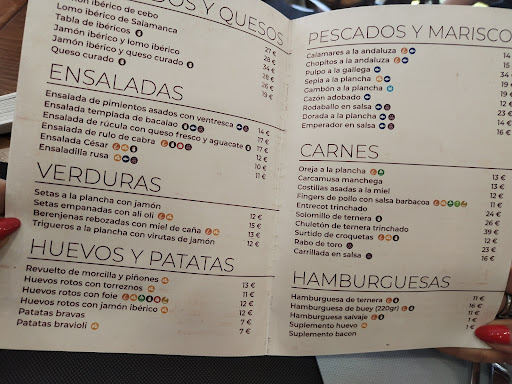 DOS Y QUESOS
ibérico de cebo 27 €
Lomo ibérico de Salamanca 28 €
Tabla de ibéricos 34 €
Jamón ibérico y lomo ibérico 28 €
Jamón ibérico y queso curado 26 €
Queso curado 19 €
ENSALADAS
Ensalada de pimientos asados con ventresca 14 €
Ensalada templada de bacalao 17 €
Ensalada de rúcula con queso fresco y aguacate 17 €
Ensalada de rulo de cabra 12 €
Ensalada César 10 €
Ensaladilla rusa 11 €
VERDURAS
Setas a la plancha con jamón 12 €
Setas empanadas con ali oli 15 €
Berenjenas rebozadas con miel de caña 13 €
Trigueros a la plancha con virutas de jamón 12 €
HUEVOS Y PATATAS
Revuelto de morcilla y piñones 13 €
Huevos rotos con torreznos 11 €
Huevos rotos con foie 12 €
Huevos rotos con jamón ibérico 12 €
Patatas bravas 7 €
Patatas bravioli 7 €
PESCADOS Y MARISCO
Calamares a la andaluza 14
Chopitos a la andaluza 15
Pulpo a la gallega 34
Sepia a la plancha 19
Gambón a la plancha 19 €
Cazón adobado 12 €
Rodaballo en salsa 23 €
Dorada a la plancha 14 €
Emperador en salsa 16 €
CARNES
Oreja a la plancha 13 €
Carcamusa manchega 13 €
Costillas asadas a la miel 12 €
Fingers de pollo con salsa barbacoa 11 €
Entrecot trinchado 24 €
Solomillo de ternera 26 €
Chuletón de ternera trinchado 39 €
Surtido de croquetas 12 €
Rabo de toro 23 €
Carrillada en salsa 16 €
HAMBURGUESAS
Hamburguesa de ternera 11 €
Hamburguesa de buey (220gr) 16 €
Hamburguesa salvaje 11 €
Suplemento huevo 1 €
Suplemento bacon 1 €